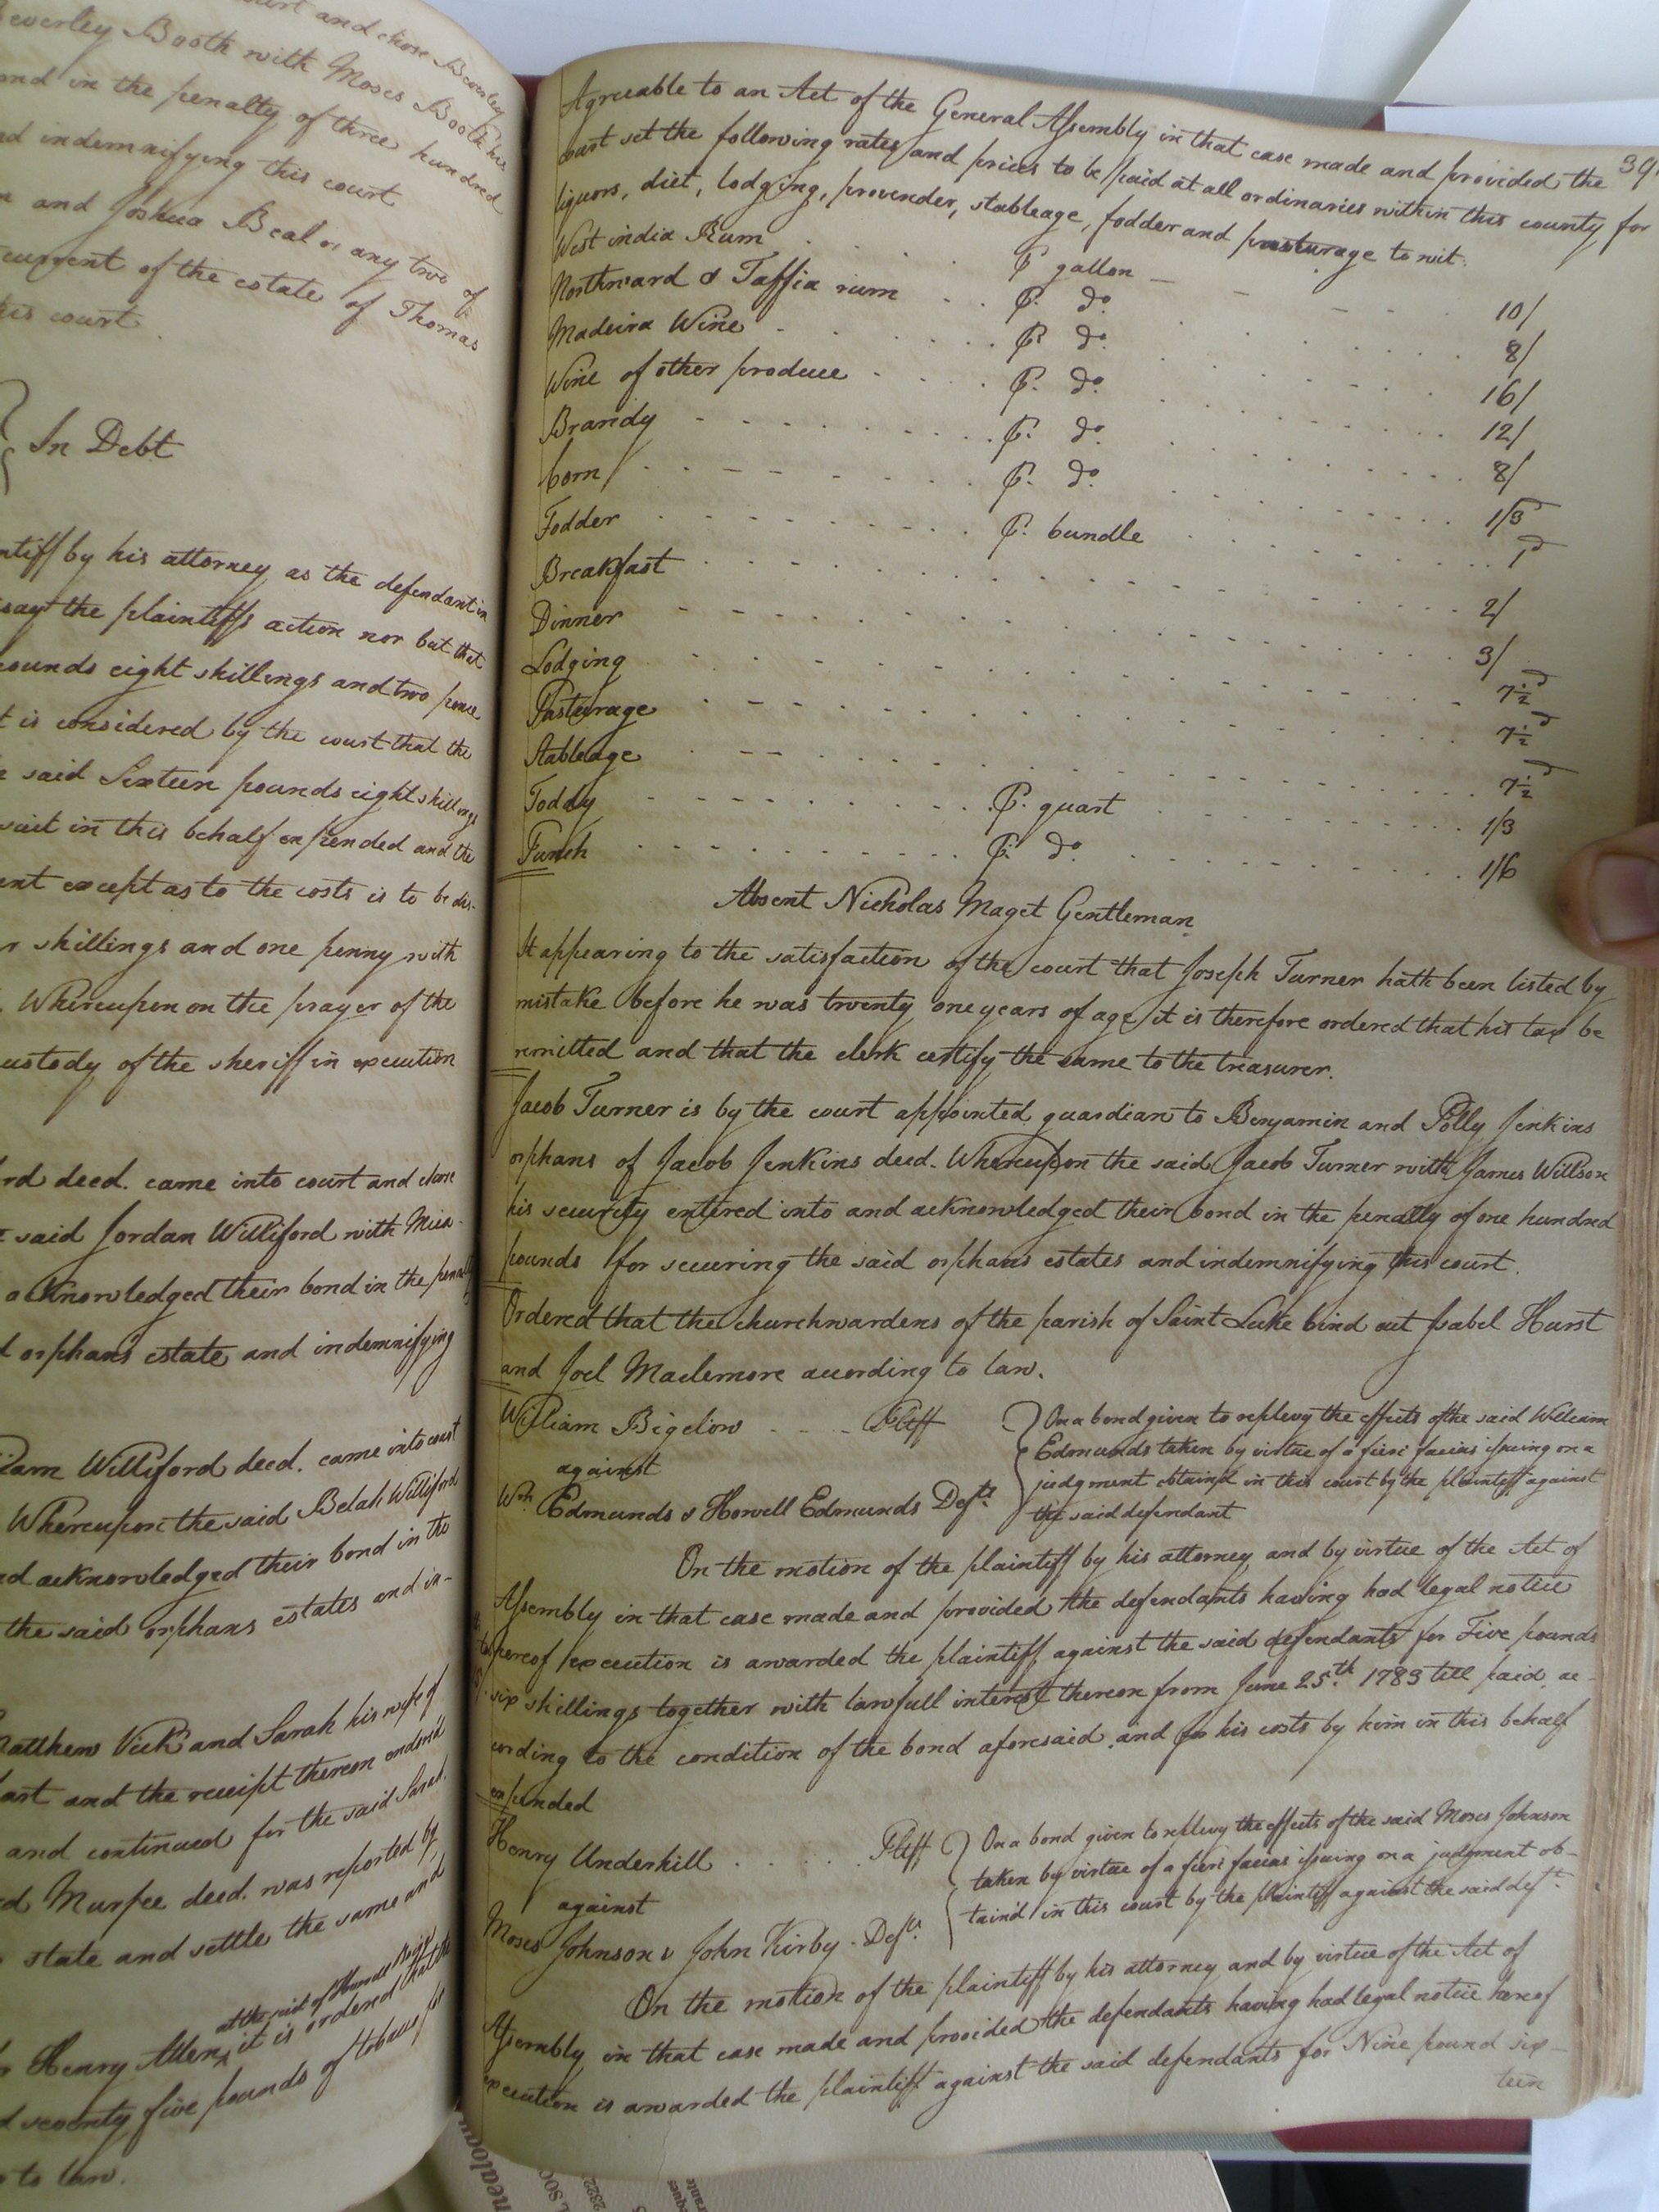 court and chose Beverley
Beverley Booth with Moses Booth his
and in the penalty of three hundred
indemnifying this court
and Joshua Beal or any two of
current of the estate of Thomas
his court.
In Debt
by his attorney as the defendant in
say the plaintiffs action nor but that
pounds eight shillings and two pence
it is considered by the court that the
said Sixteen pounds eight shillings
suit in this behalf expended and the
except as to the costs is to be dis-
shillings and one penny with
Whereupon on the prayer of the
custody of the sheriff in execution
deed. came into court and chose
said Jordan Williford with
acknowledged their bond in the
orphans estate and indemnifying
Williford deed. came into court
Whereupon the said Belah Williford
acknowledged their bond in the
the said orphans estates and in-
Matthew Vick and Sarah his wife of
and the receipt thereon endors'd
and continued for the said Sarah.
Murfee deed. was reported by
state and settle the same and
at the suit of
Henry Allen it is ordered that the
seventy five pounds of tobacco for
to law.
39
Agreeable to an Act of the General Assembly in that case made and provided the
court set the following rates and prices to be paid at all ordinaries within this county for
liquors, diet, lodging, provender, stableage, fodder and pasturage to wit.
West india Rum ₱ gallon 10/
Northward & Taffia rum ₱. do. 8/
Madeira Wine ₱. do. 16/
Wine of other produce ₱. do. 12/
Brandy ₱. do. 8/
Corn ₱. do. 1/3d
Fodder ₱. bundle 1d
Breakfast 2/
Dinner 3/
Lodging 7½d
Pasturage 7½d
Stableage 7½d
Toddy ₱. quart 1/3
Punch ₱. do. 1/6
Absent Nicholas Maget Gentleman.
It appearing to the satisfaction of the court that Joseph Turner hath been listed by
mistake before he was twenty one years of age it is therefore ordered that his tax be
remitted and that the clerk certify the same to the treasurer.
Jacob Turner is by the court appointed guardian to Benjamin and Polly Jenkins
orphans of Jacob Jenkins deed. Whereupon the said Jacob Turner with James Willson
his security entered into and acknowledged their bond in the penalty of one hundred
pounds for securing the said orphans estates and indemnifying this court.
Ordered that the churchwardens of the parish of Saint Luke bind out Isabel Hurst
and Joel Maclemore according to law.
William Bigelow Pltff
against
Wm. Edmunds & Howell Edmunds Defts.
On a bond given to replevy the effects of the said William
Edmunds taken by virtue of a fieri facias issuing on a
judgment obtained in this court by the plaintiff against
the said defendant
On the motion of the plaintiff by his attorney and by virtue of the Act of
Assembly in that case made and provided the defendants having had legal notice
hereof execution is awarded the plaintiff against the said defendants for Five pounds
six shillings together with lawfull interest thereon from June 25.th 1783 till paid, ac-
cording to the condition of the bond aforesaid and for his costs by him in this behalf
expended
Henry Underhill Pltff
against
Moses Johnson & John Kirby - Defts.
On a bond given to replevy the effects of the said Moses Johnson
taken by virtue of a fieri facias issuing on a judgment ob-
tain'd in this court by the plaintiff against the said deft.
On the motion of the plaintiff by his attorney and by virtue of the Act of
Assembly in that case made and provided the defendants having had legal notice hereof
execution is awarded the plaintiff against the said defendants for Nine pound six-
teen